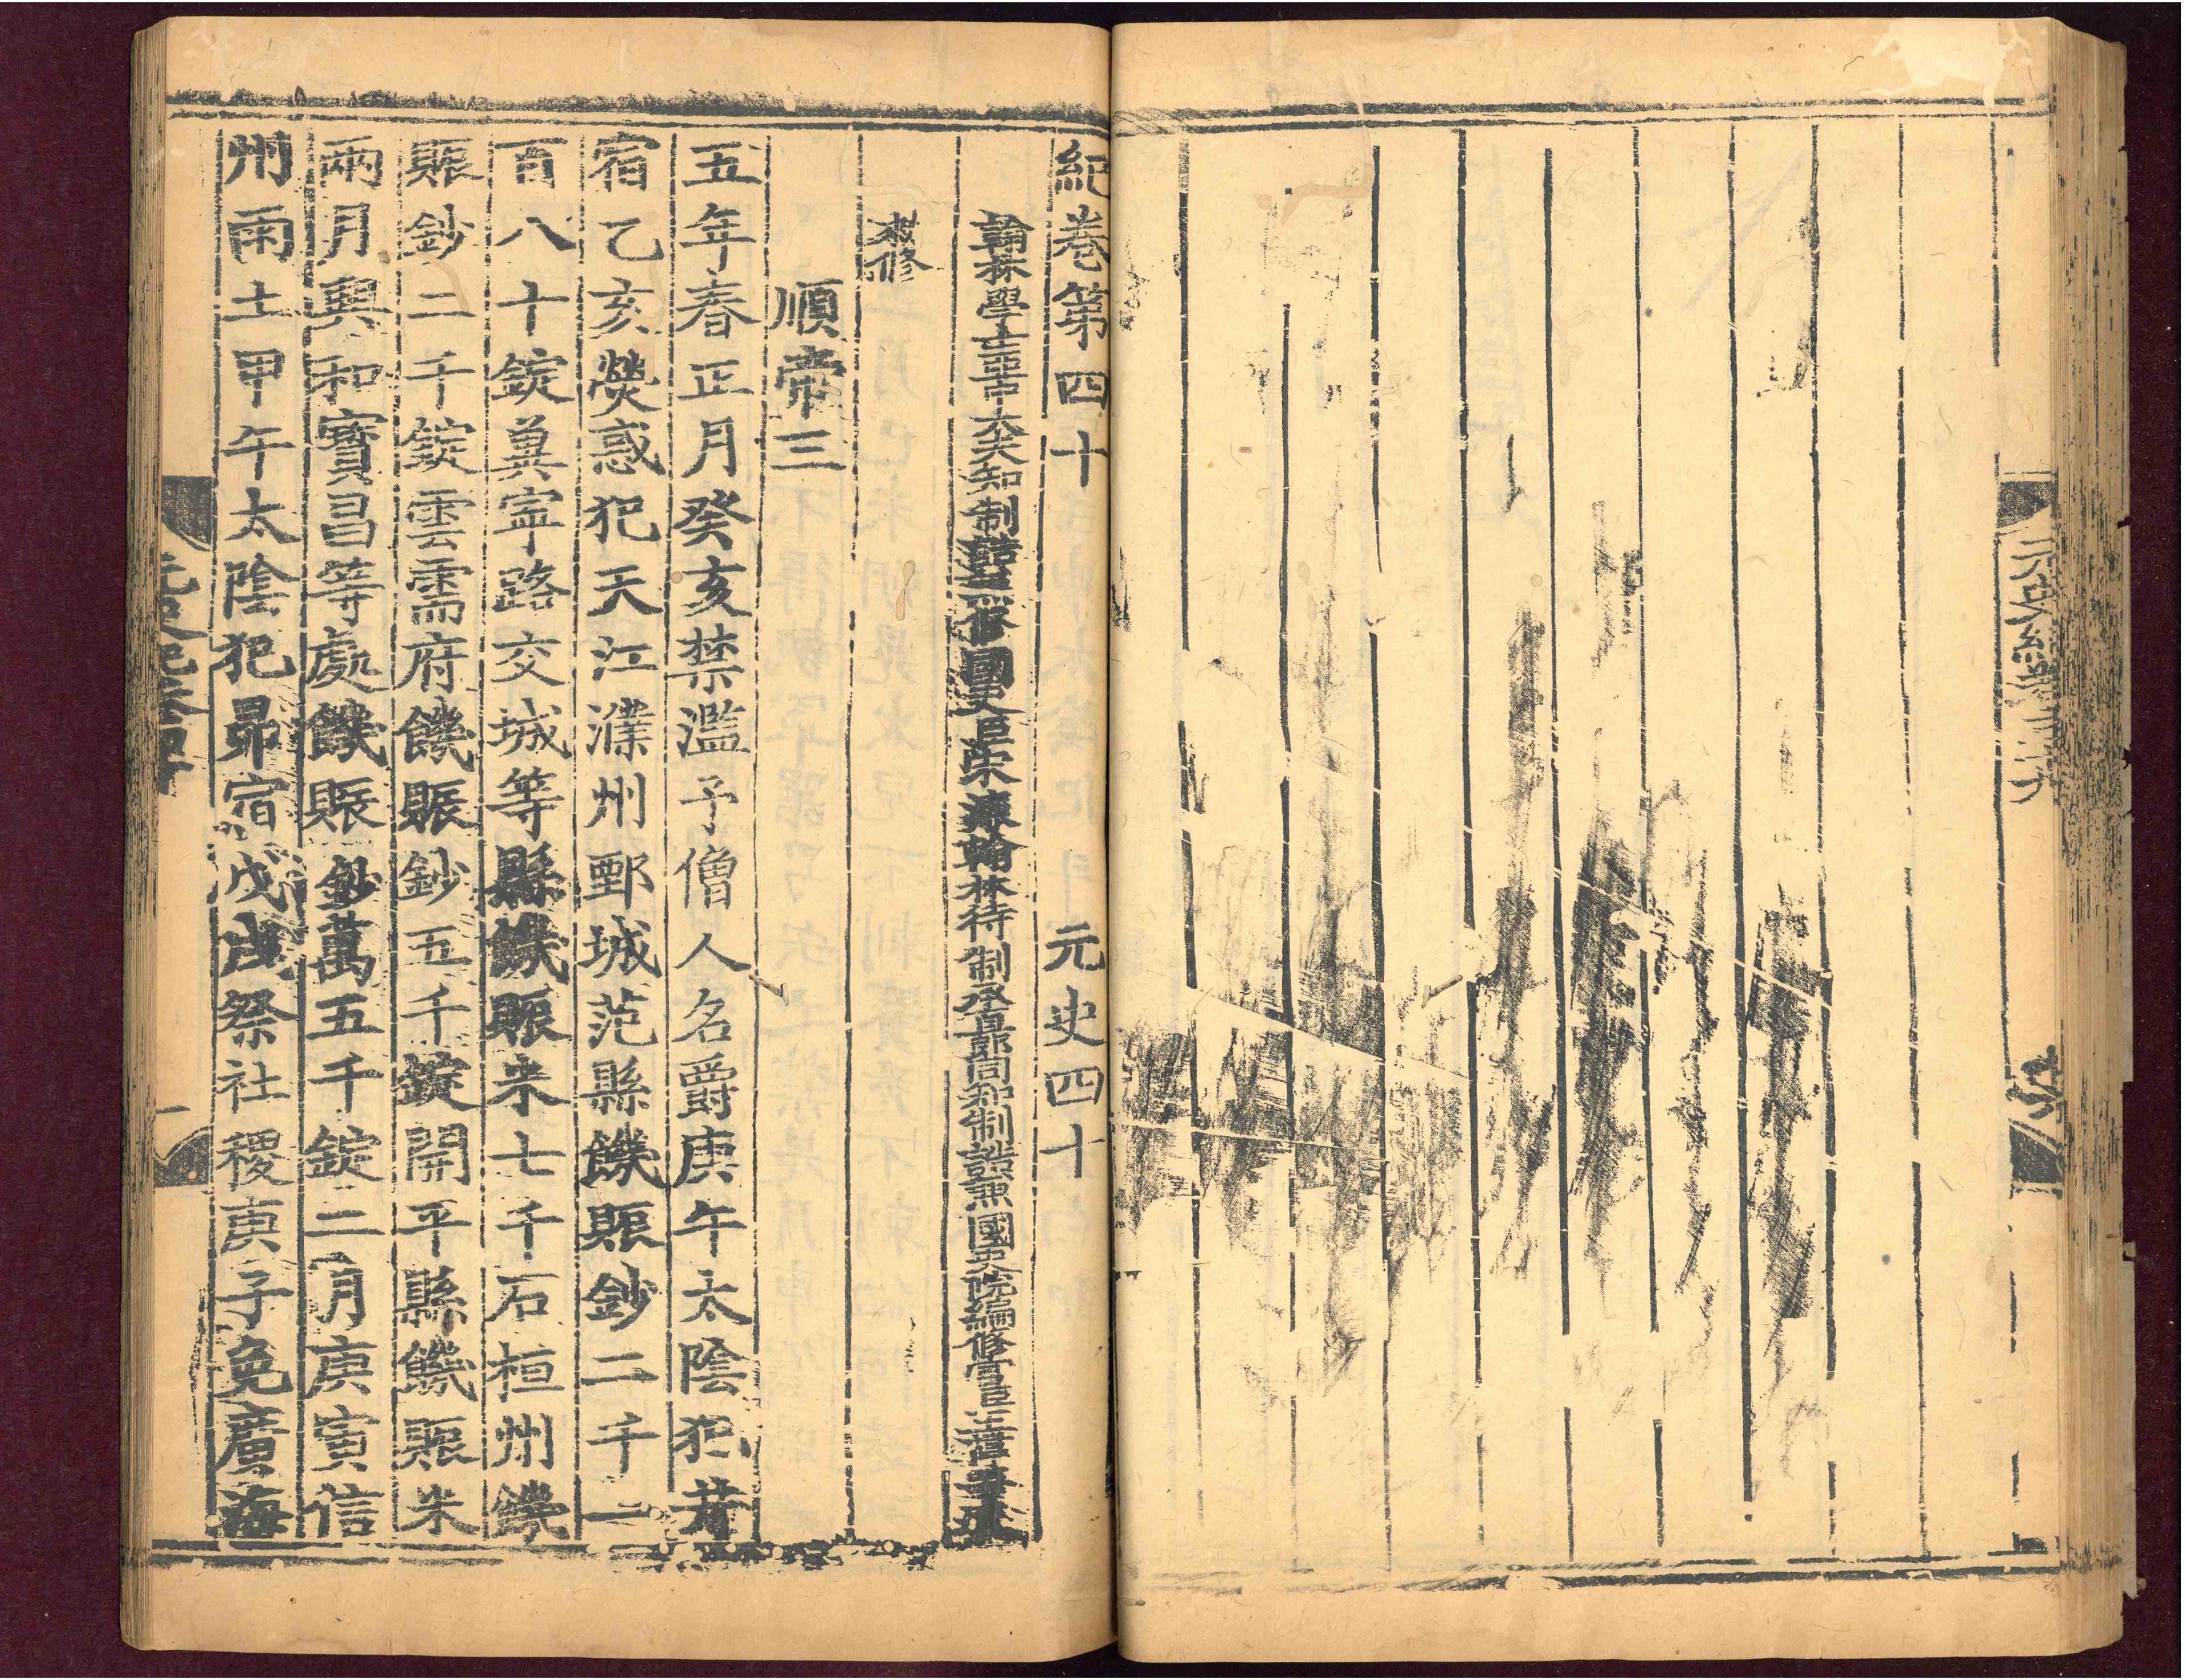 紀卷第四十 元史四十
翰林學士亞中大夫知制誥兼修國史臣宋濂翰林待制承直郎同知制誥兼國史院編修官臣王禕等奉
敕修
順帝三
五年春正月癸亥禁濫予僧人名爵庚午太陰犯井
宿乙亥熒惑犯天江濮州鄄城范縣饑賑鈔二千一
百八十錠冀寧路交城等縣饑賑米七千石桓州饑
賑鈔二千錠雲需府饑賑鈔五千錠開平縣饑賑米
兩月興和寶昌等處饑賑鈔萬五千錠二月庚寅信
州雨土甲午太陰犯昴宿戊戌祭社稷庚子免廣海
元史紀卷四十
一